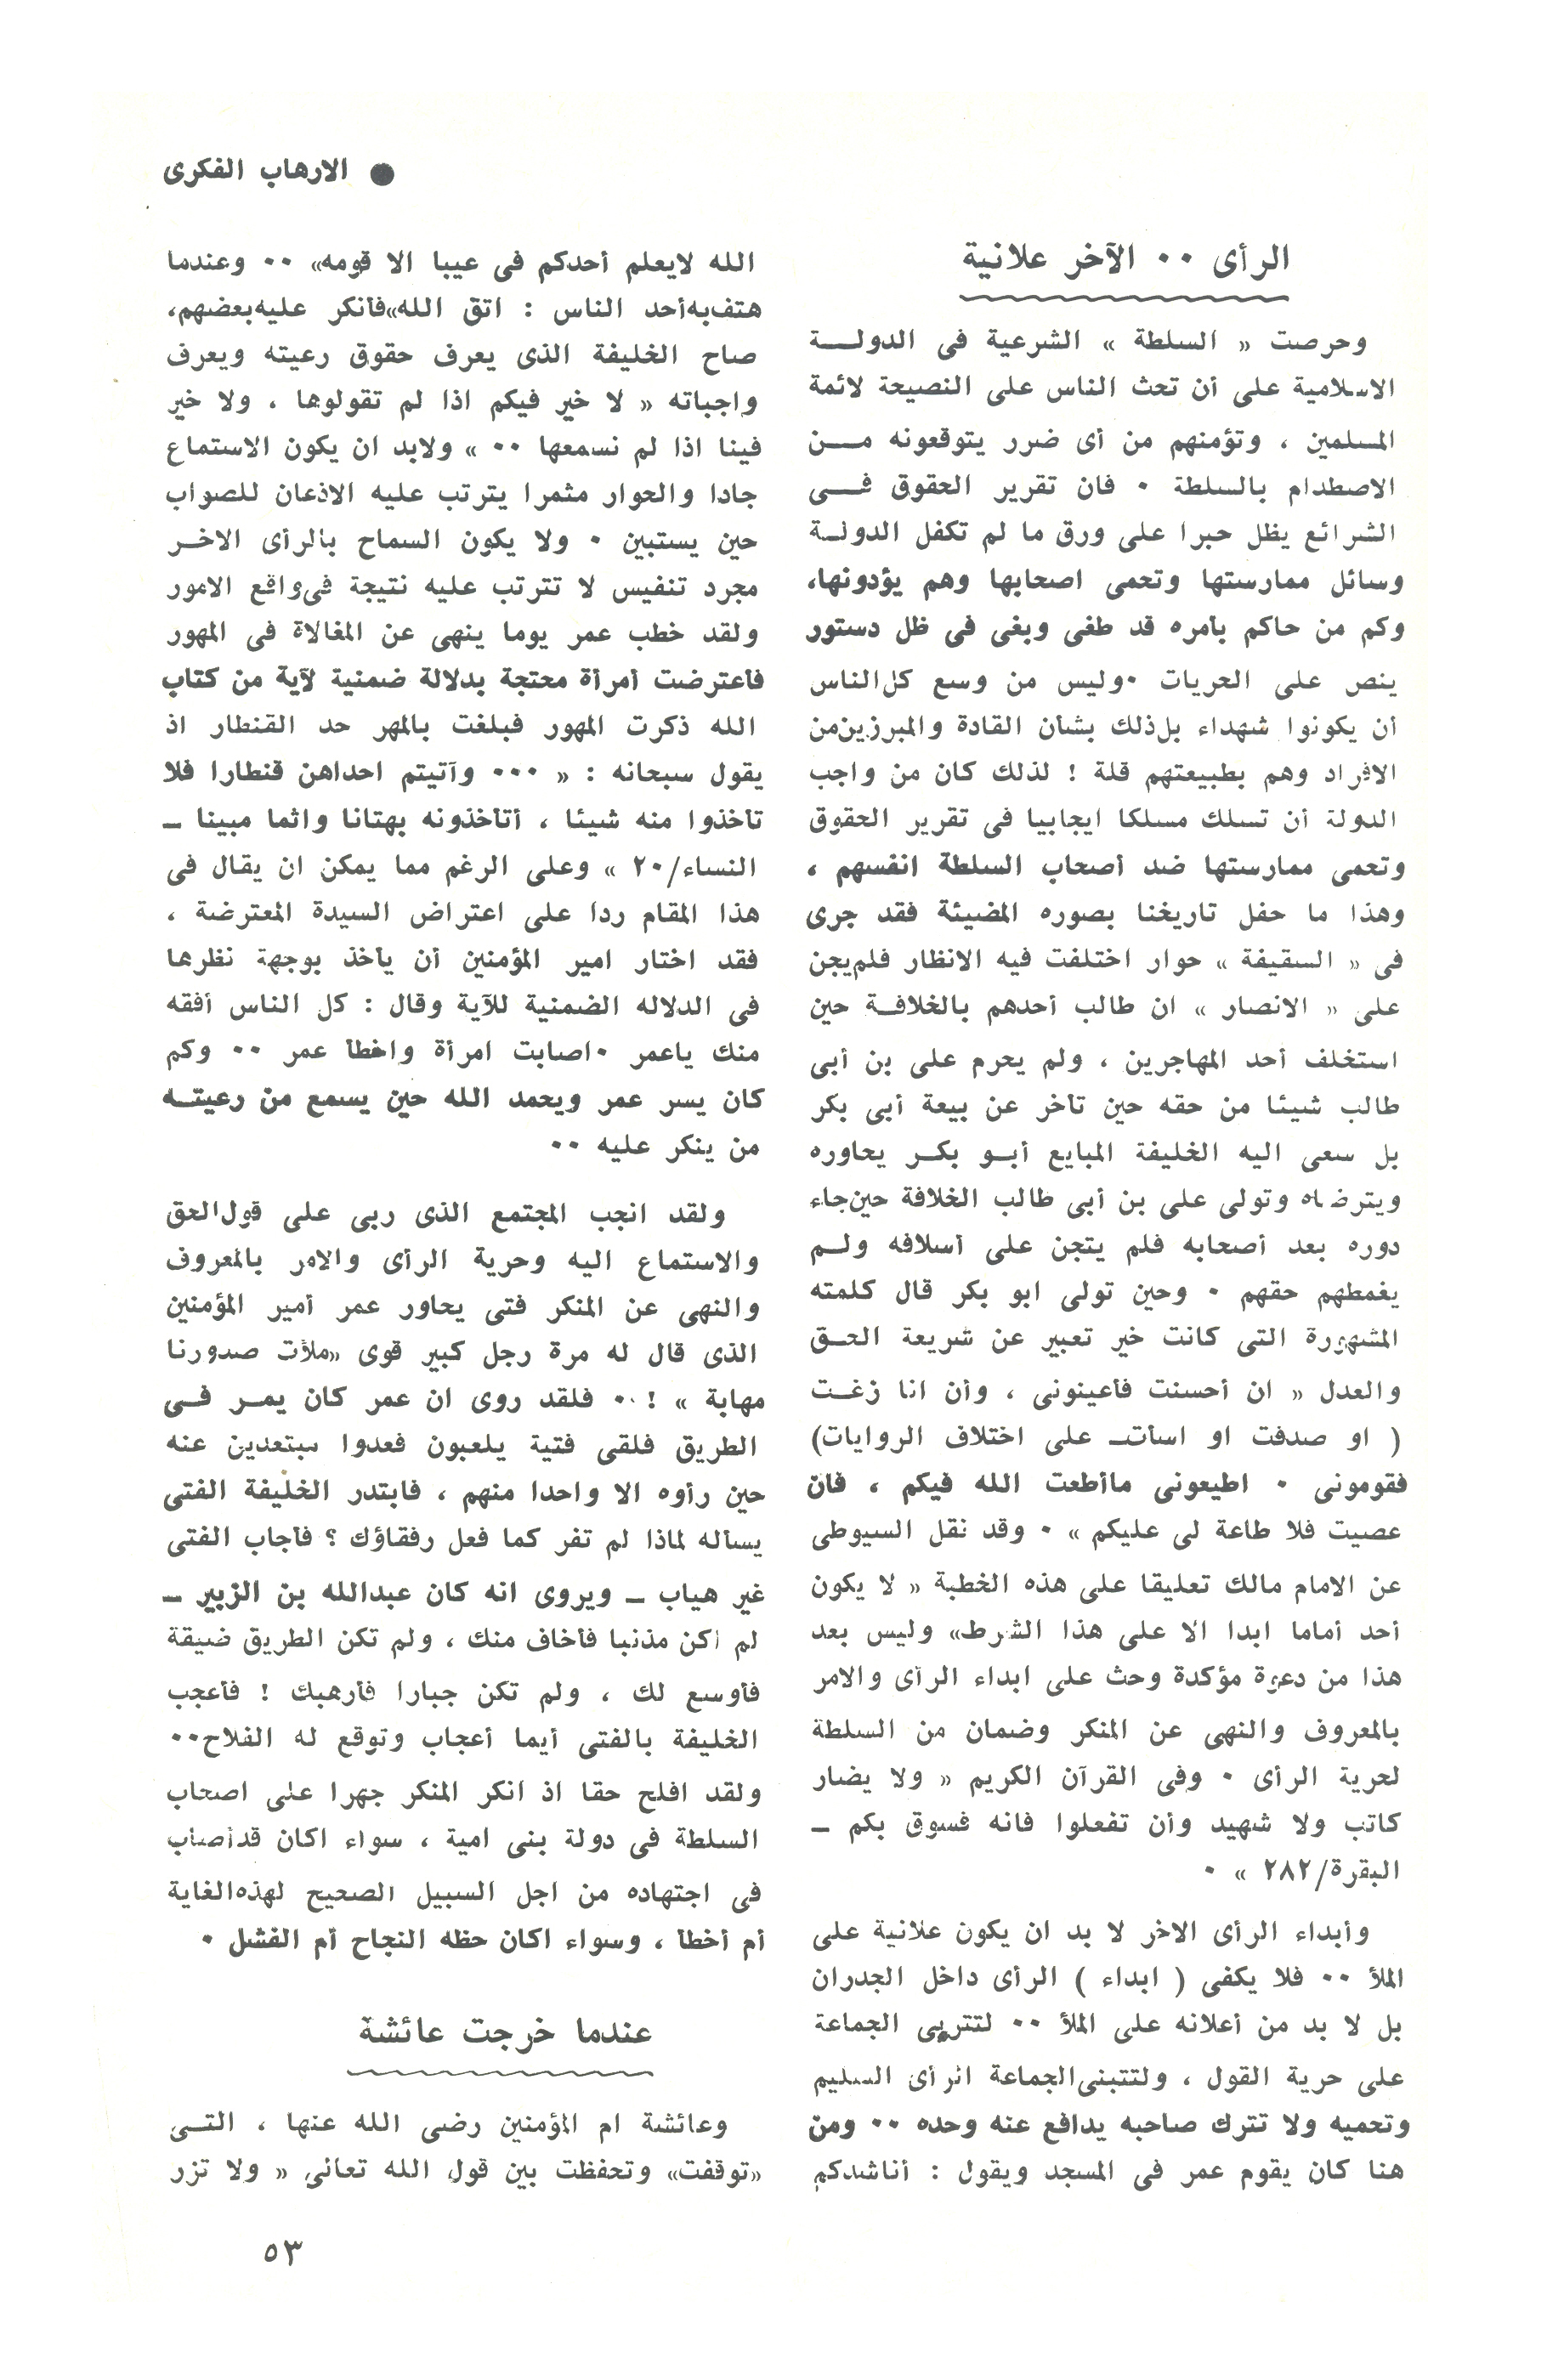 ● الارهاب الفكرى
الرأى ٠٠ الآخر علانية
وحرصت « السلطة » الشرعية فى الدولــة
الاسلامية على أن تحث الناس على النصيحة لائمة
المسلمين ، وتؤمنهم من أى ضرر يتوقعونه مــن
الاصطدام بالسلطة ٠ فان تقرير الحقوق فــى
الشرائع يظل حبرا على ورق ما لم تكفل الدولـة
وسائل ممارستها وتحمى اصحابها وهم يؤدونها،
وكم من حاكم بأمره قد طغى وبغى فى ظل دستور
ينص على الحريات ٠وليس من وسع كل الناس
أن يكونوا شهداء بل ذلك بشأن القادة والمبرزين من
الافراد وهم بطبيعتهم قلة ! لذلك كان من واجب
الدولة أن تسلك مسلكا ايجابيا فى تقرير الحقوق
وتحمى ممارستها ضد أصحاب السلطة انفسهم ،
وهذا ما حفل تاريخنا بصوره المضيئة فقد جرى
فى « السقيفة » حوار اختلفت فيه الانظار فلم يجن
على « الانصار » ان طالب أحدهم بالخلافـة حين
استخلف أحد المهاجرين ، ولم يحرم على بن أبى
طالب شيئا من حقه حين تأخر عن بيعة أبى بكر
بل سعى اليه الخليفة المبايع أبـو بكـر يحاوره
ويترضاه وتولى على بن أبى طالب الخلافة حين جاء
دوره بعد أصحابه فلم يتجن على أسلافه ولـم
يغمطهم حقهم ٠ وحين تولى ابو بكر قال كلمته
المشهورة التى كانت خير تعبير عن شريعة الحـق
والعدل « ان أحسنت فأعينونى ، وأن انا زغـت
( او صدفت او اسأتـ على اختلاف الروايات)
فقومونى ٠ اطيعونى ماأطعت الله فيكم ، فان
عصيت فلا طاعة لى عليكم » ٠ وقد نقل السيوطى
عن الامام مالك تعليقا على هذه الخطبة « لا يكون
أحد أماما ابدا الا على هذا الشرط» وليس بعد
هذا من دعوة مؤكدة وحث على ابداء الرأى والامر
بالمعروف والنهى عن المنكر وضمان من السلطة
لحرية الرأى ٠ وفى القرآن الكريم « ولا يضار
كاتب ولا شهيد وأن تفعلوا فانه فسوق بكم ـ
البقرة/٢٨٢ » ٠
وأبداء الرأى الاخر لا بد ان يكون علانية على
الملأ ٠٠ فلا يكفى ( ابداء ) الرأى داخل الجدران
بل لا بد من أعلانه على الملأ ٠٠ لتتربى الجماعة
على حرية القول ، ولتتبنى الجماعة الرأى السليم
وتحميه ولا تترك صاحبه يدافع عنه وحده ٠٠ ومن
هنا كان يقوم عمر فى المسجد ويقول : أناشدكم
الله لايعلم أحدكم فى عيبا الا قومه» ٠٠ وعندما
هتف به أحد الناس : اتق الله»فأنكر عليه بعضهم،
صاح الخليفة الذى يعرف حقوق رعيته ويعرف
واجباته « لا خير فيكم اذا لم تقولوها ، ولا خير
فينا اذا لم نسمعها ٠٠ » ولابد ان يكون الاستماع
جادا والحوار مثمرا يترتب عليه الاذعان للصواب
حين يستبين ٠ ولا يكون السماح بالرأى الاخـر
مجرد تنفيس لا تترتب عليه نتيجة فى واقع الامور
ولقد خطب عمر يوما ينهى عن المغالاة فى المهور
فأعترضت أمرأة محتجة بدلالة ضمنية لآية من كتاب
الله ذكرت المهور فبلغت بالمهر حد القنطار اذ
يقول سبحانه : « ٠٠٠ وآتيتم احداهن قنطارا فلا
تأخذوا منه شيئا ، أتأخذونه بهتانا واثما مبينا ـ
النساء/٢٠ » وعلى الرغم مما يمكن ان يقال فى
هذا المقام ردا على اعتراض السيدة المعترضة ،
فقد اختار امير المؤمنين أن يأخذ بوجهة نظرها
فى الدلاله الضمنية للآية وقال : كل الناس أفقه
منك ياعمر ٠اصابت امرأة واخطأ عمر ٠٠ وكم
كان يسر عمر ويحمد الله حين يسمع من رعيتـه
من ينكر عليه ٠٠
ولقد انجب المجتمع الذى ربى على قول الحق
والاستماع اليه وحرية الرأى والامر بالمعروف
والنهى عن المنكر فتى يحاور عمر أمير المؤمنين
الذى قال له مرة رجل كبير قوى «ملأت صدورنا
مهابة » ! ٠٠ فلقد روى ان عمر كان يمـر فـى
الطريق فلقى فتية يلعبون فعدوا مبتعدين عنه
حين رأوه الا واحدا منهم ، فابتدر الخليفة الفتى
يسأله لماذا لم تفر كما فعل رفقاؤك ؟ فأجاب الفتى
غير هياب ـ ويروى انه كان عبدالله بن الزبير ـ
لم أكن مذنبا فأخاف منك ، ولم تكن الطريق ضيقة
فأوسع لك ، ولم تكن جبارا فأرهبك ! فأعجب
الخليفة بالفتى أيما أعجاب وتوقع له الفلاح٠٠
ولقد افلح حقا اذ انكر المنكر جهرا على اصحاب
السلطة فى دولة بنى امية ، سواء اكان قد أصاب
فى اجتهاده من اجل السبيل الصحيح لهذه الغاية
أم أخطأ ، وسواء اكان حظه النجاح أم الفشل ٠
عندما خرجت عائشة
وعائشة ام المؤمنين رضى الله عنها ، التـى
«توقفت» وتحفظت بين قول الله تعالى « ولا تزر
٥٣